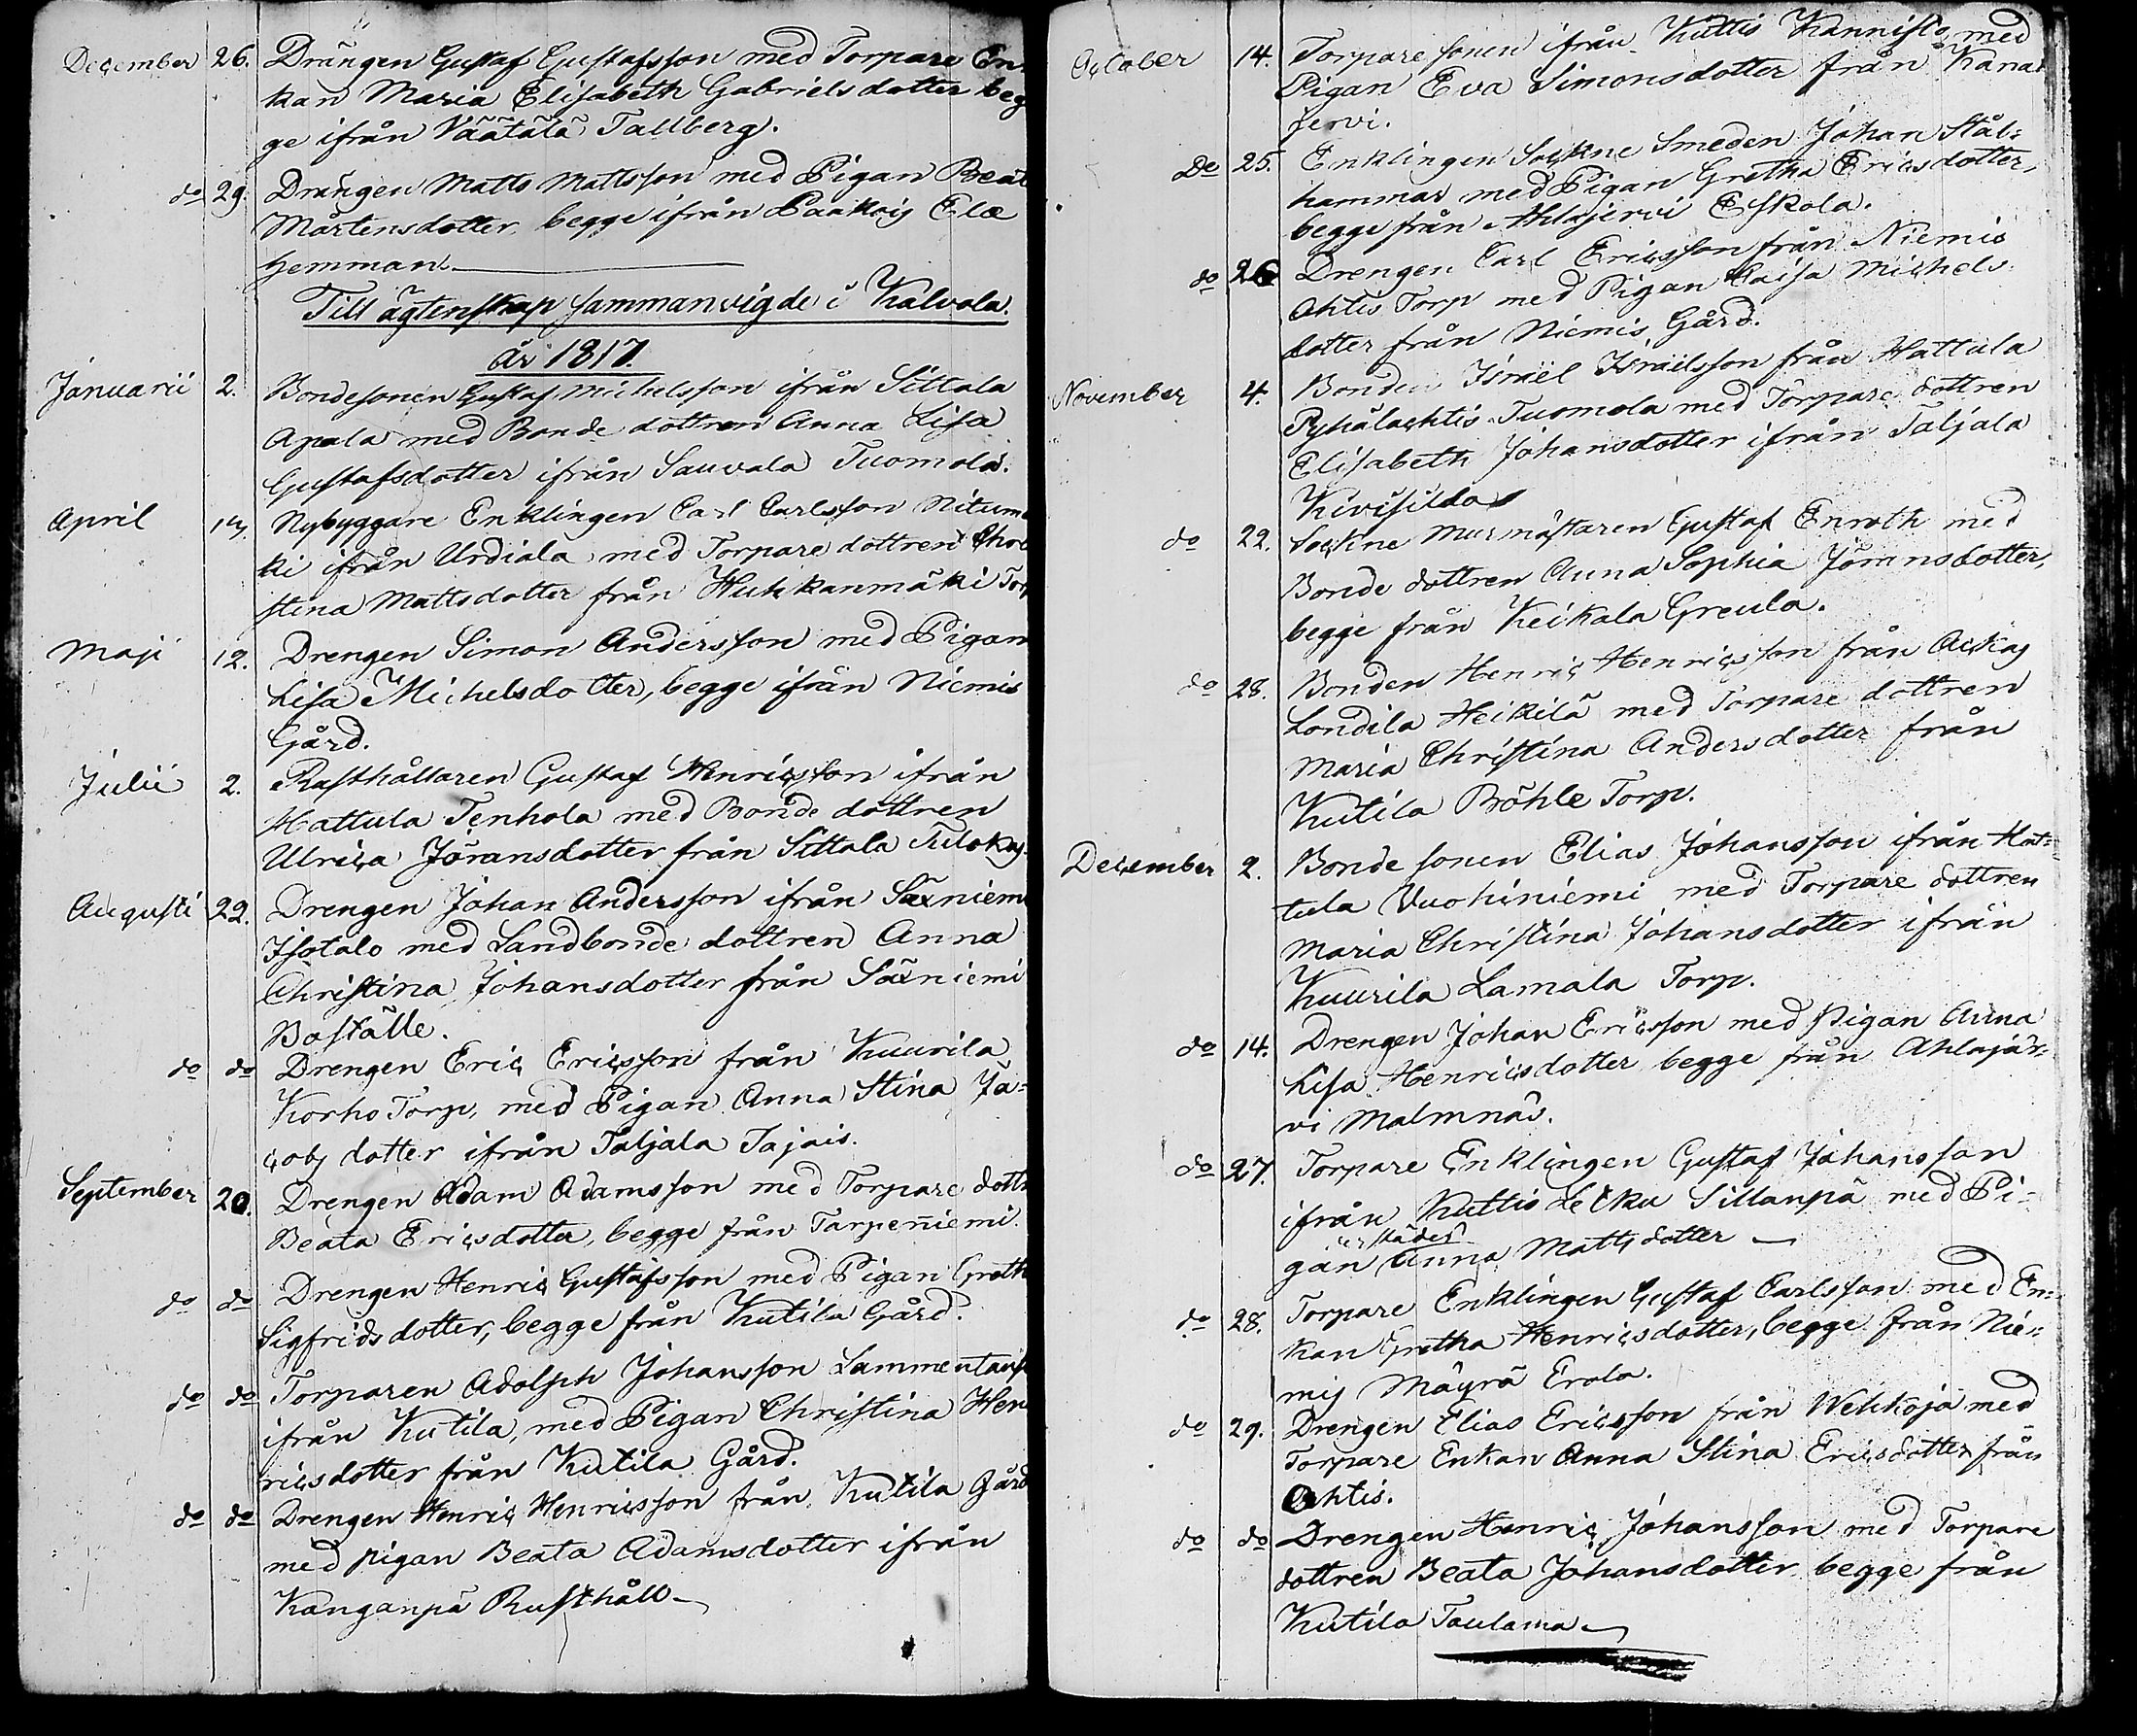 December 26. Drängen Gustaf Gustafsson med Torpare En-
kan Maria Elisabeth Gabrielsdotter beg
ge ifrån Väätälä Tallberg.
do 29. Drängen Matts Mattsson med Pigan Beat
Mårtensdotter begge ifrån Paakois
Hemman.
Till ägtenskap sammanvigde i Kalvola.
år 1817.
Januarii 2. Bondesonen Gustaf Michelsson ifrån Sittala
Apala med Bonde dottren Anna Lisa
Gustafsdotter ifrån Sauvala Tuomola.
April Nybyggare Enklingen Carl Carlsson Nitum
ki ifrån Urdiala med Torpare dottren Chri
stina Mattsdotter från Huhkanmäki Tor
Maji 12. Drengen Simon Andersson med Pigan
Lisa Michelsdotter, begge ifrån Niemis
Gård.
Julii 2. Rusthållaren Gustaf Henricsson ifrån
Hattula Tenhola med Bonde dottren
Ulrica Jöransdotter från Sittala
Augusti 22. Drengen Johan Andersson ifrån Säxniem
Isotalo med Landbonde dottren Anna
Christina Johansdotter från Säxniemi
Boställe.
do do Drengen Eric Ericsson från Kuurila
Korho Torp, med Pigan Anna Stina Ja=
cobs dotter ifrån Taljala Tajais.
September 20. Drengen Adam Adamsson med Torpare dott
Beata Ericsdotter, begge från Tarpenniemi.
do do Drengen Henric Gustafsson med Pigan Greth
Sigfridsdotter, begge från Kutila Gård.
do do Torparen Adolph Johansson Lammentaus
ifrån Kutila, med Pigan Christina Hen
ricsdotter från Kutila Gård.
do do Drengen Henric Henricsson från Kutila Gård
med pigan Beata Adamsdotter ifrån
Kanganpä Rusthåll
October 14. Torpare sonen ifrån Kuttis Kannisto, med
Pigan Eva Simonsdotter från Kana
jervi.
Do 25. Enklingen Sockne Smeden Johan Stål=
hammar med Pigan Gretha Ericsdotter,
begge från Ahlajervi Eskola.
do 26 Drengen Carl Ericsson från Niemis
Ahtis Torp med Pigan Caisa Michels
dotter från Niemis Gård.
November 4. Bonden Israël Israëlsson från Hattula
Pyhälachtis Tuomola med Torpare dottren
Elisabeth Johansdotter ifrån Taljala
Kivisilda
do 22. Sockne Murmästaren Gustaf Enroth med
Bonde dottren Anna Sophia Jöransdotter,
begge från Keikala Greula.
do 28. Bonden Henric Henricsson från Ackas
Londila Heikilä med Torpare dottren
Maria Christina Andersdotter från
Kutila Böhle Torp.
December 2. Bonde sonen Elias Johansson ifrån Hat=
tula Vuohiniemi med Torpare dottren
Maria Christina Johansdotter ifrån
Kuurila Lamala Torp.
do 14. Drengen Johan Ericsson med pigan Anna
Lisa Henricsdotter begge från Ahlajär=
vi Malmnäs.
do 27. Torpare Enklingen Gustaf Johansson
ifrån Kuttis Sillanpä med Pi=
gan Anna Mattsdotter
do 28. Torpare Enklingen Gustaf Carlsson med En=
kan Gretha Henricsdotter, begge från Nie=
mis Mäyrä Erola.
do 29. Drengen Elias Ericsson från Wehkoja med
Torpare Enkan Anna Stina Ericsdotter från
Ohtis.
do do Drengen Henric Johansson med Torpare
dottren Beata Johansdotter begge från
Kutila Taulama